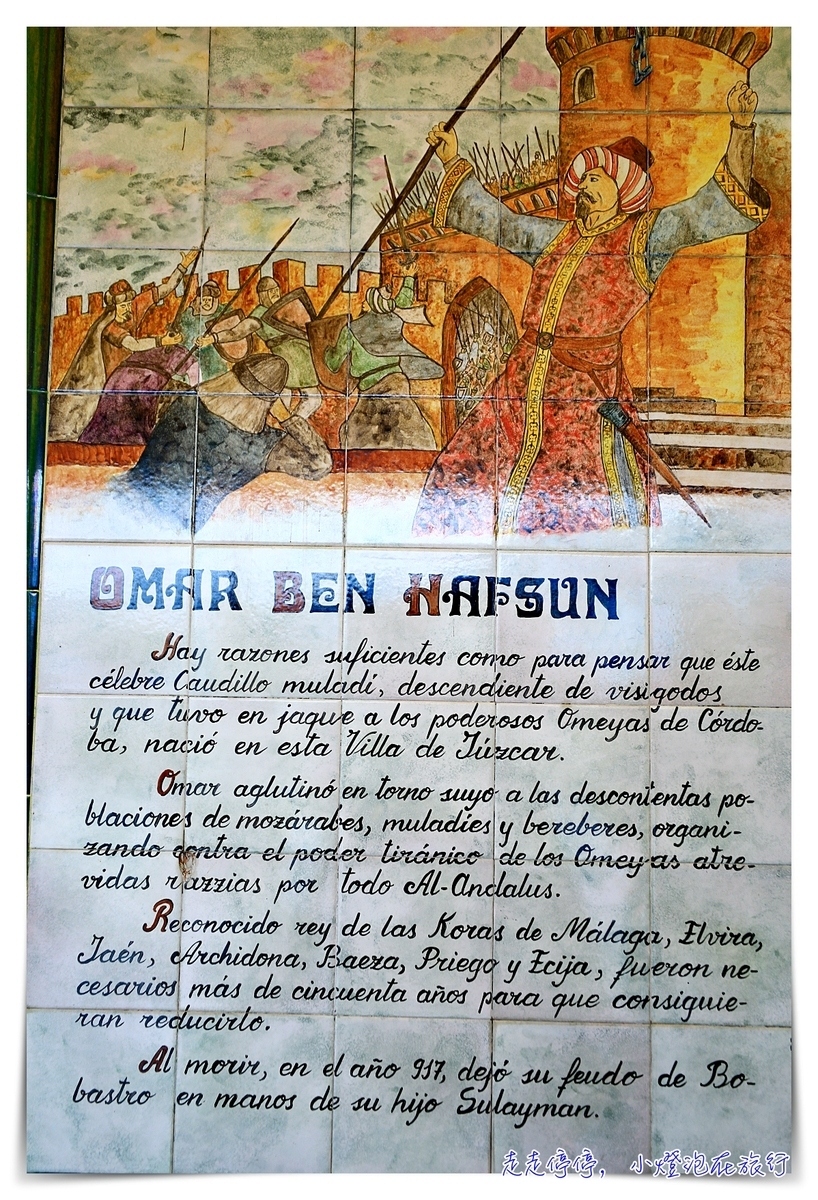 OMAR BEN HAFSUN
Hay razones suficientes como para pensar que éste
célebre Caudillo muladí, descendiente de visigodos
y que tuvo en jaque a los poderosos Omeyas de Córdo-
ba, nació en esta Villa de Júzcar.
Omar aglutinó en torno suyo a las descontentas po-
blaciones de mozárabes, muladíes y bereberes, organi-
zando contra el poder tiránico de los Omeyas atre-
vidas razzias por todo Al-Andalus.
Reconocido rey de las Koras de Málaga, Elvira,
Jaén, Archidona, Baeza, Priego y Ecija, fueron ne-
cesarios más de cincuenta años para que consiguie-
ran reducirlo.
Al morir, en el año 917, dejó su feudo de Bo-
bastro en manos de su hijo Sulayman.
走走停停, 小燈泡在旅行